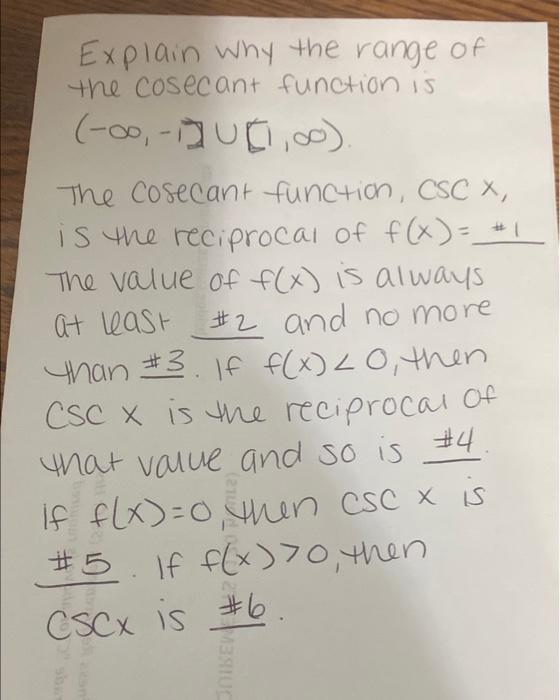 Explain why the range of
the cosecant function is
(-∞, -1] ∪ [1, ∞).
The cosecant function, csc x,
is the reciprocal of f(x) = #1
The value of f(x) is always
at least #2 and no more
than #3. If f(x) < 0, then
csc x is the reciprocal of
that value and so is #4.
if f(x) = 0, then csc x is
#5. If f(x) > 0, then
cscx is #6.